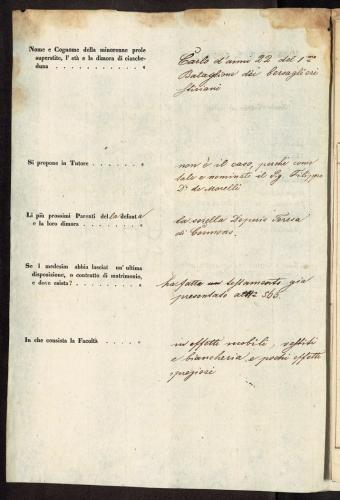 Nome e Cognome della minorenne prole
superstite, l' età e la dimora di ciasche-
duna
Carlo d'anni 22 del 1mo
Bataglione dei bersaglieri
Si propone in Tutore
non è il caso, perchè come
tale è nominato il Sig. Filippo
Dr de Morelli
Li più prossimi Parenti della defunta
e la loro dimora
la sorella Teresa
di Cormons.
Se i medesim abbia lasciat un' ultima
disposizione, o contratto di matrimonio,
e dove esista?
ha fatto un testamento già
presentato al N 566.
In che consista la Facoltà
in effetti mobili, vestiti
e biancheria e pochi effetti
preziosi